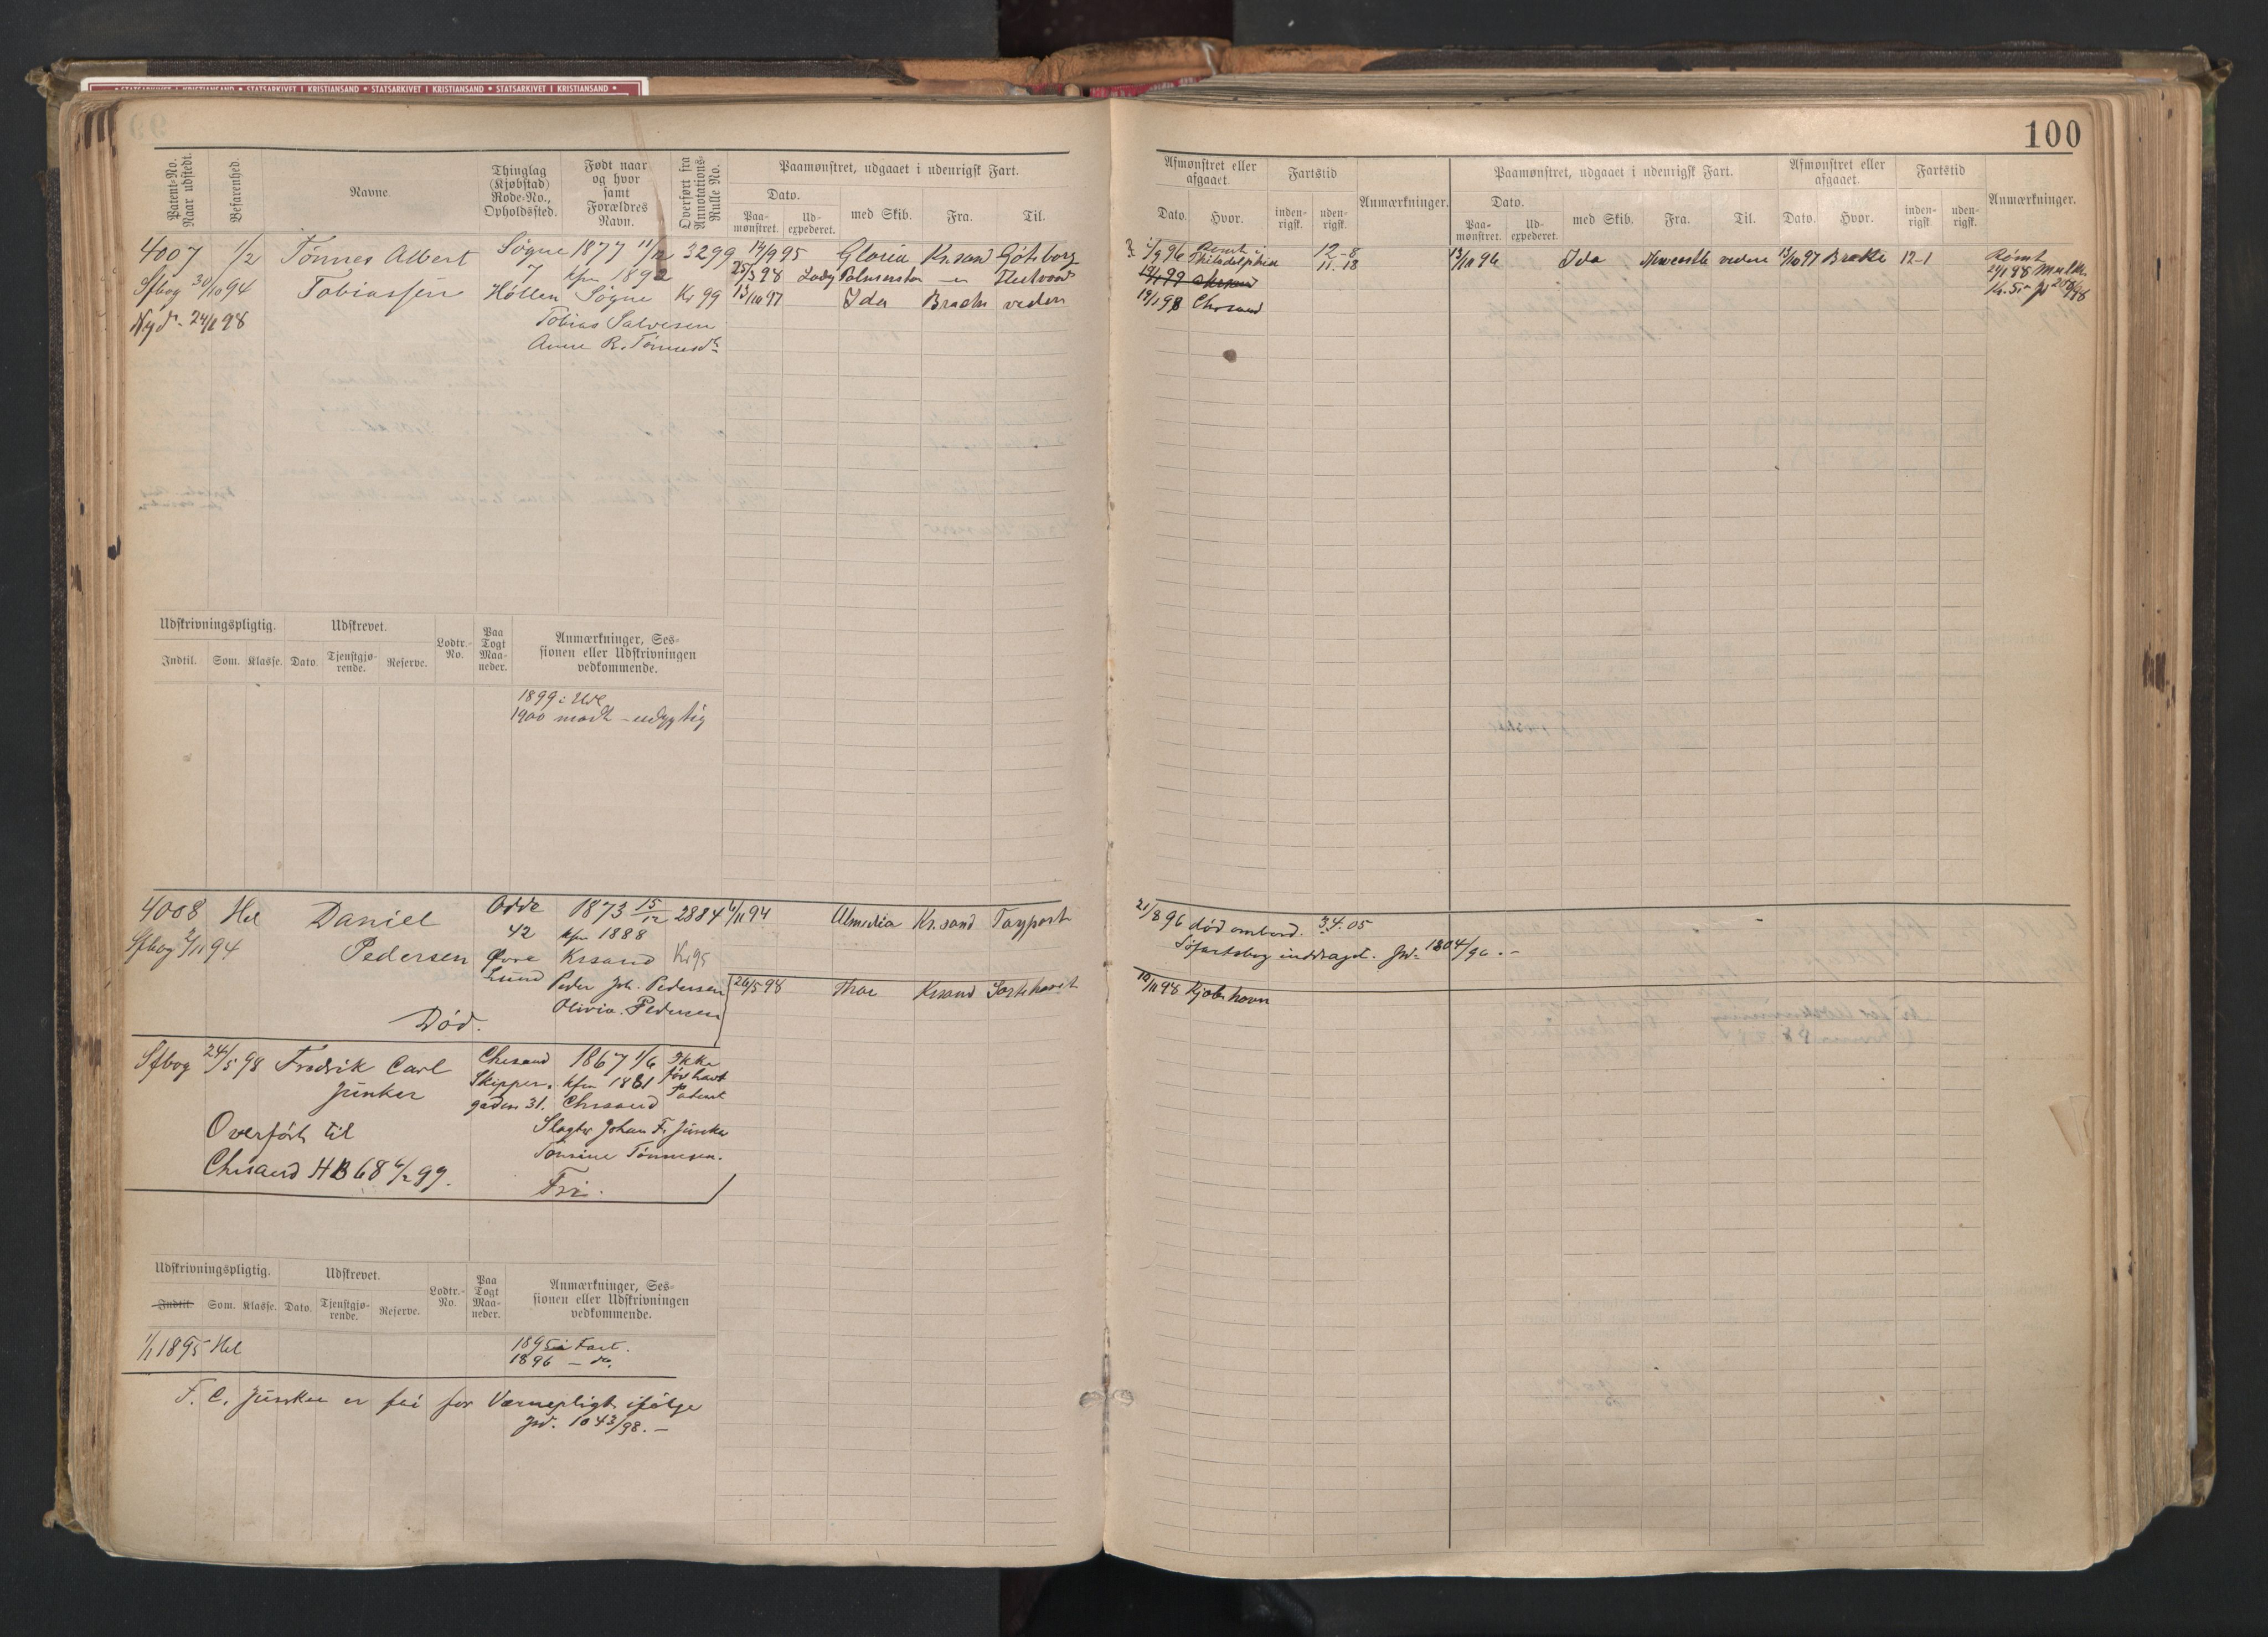 STATSARKIVET | KRISTIANSAND * STATSARKIVET | KRISTIANSAND * STATSARKIVET | KRISTIANSAND * STATSARKIVET | KRISTIANSAND *
100
Patent-No. Naar udstedt.
Befarenhed.
Navne
Thinglag (Kjøbstad) Rode-No., Opholdssted.
Født naar og hvor samt Forældres Navn.
Overført fra Annotations-Rulle No.
Paamønstret, udgaaet i udenrigsk Fart.
Dato.
Paa-mønstret.
Ud-expederet.
med Skib.
Fra.
Til.
Afmønstret eller afgaaet.
Dato.
Hvor.
Fartstid
inden-rigsk.
uden-rigsk.
Anmærkninger.
Paamønstret, udgaaet i udenrigsk Fart.
Dato.
Paa-mønstret.
Ud-expederet.
med Skib.
Fra.
Til.
Afmønstret eller afgaaet.
Dato.
Hvor.
Fartstid
inden-rigsk.
uden-rigsk.
Anmærkninger.
4007 1/2 Tønnes Albert Søgne 1877 11/12 3299 14/9 95 Gloria Kr.sand Göteborg
7 kfm 1892 25/3 98 Lady
Sfbog 30/10 94 Tobiassen Høllen Søgne Kr 99 13/10 97 Ida Brake
Nyd. 24/1 98 Tobias Salvesen
Anne R. Tønnesdr
Rømt
Philadelphia
12-8
11-18
14/1 98 Chrsand
13/10 96 Ida Newcastle videre 13/10 97 Brake 12-1
Rømt
Udskrivningspligtig.
Udskrevet.
Lodtr.-No.
Paa Togt Maa-neder.
Anmærkninger, Ses-sionen eller Udskrivningen vedkommende.
Indtil.
Som.
Klasse.
Dato.
Tjenstgjø-rende.
Reserve.
1899 i Udl
1900 mødt - udygtig
4008 Hel Daniel Odde 1873 15/12 2884 6/11 94 Almedia Kr.sand Tayport
42 kfm 1888
Sfbog 2/11 94 Pedersen Øvre Krsand Kr 95
Lund Peder Joh. Pedersen 26/5 98 Thor Krsand
Olivia Pedersen
Død.
21/8 96 død ombord. 34.05
Søfartsbog inddraget. Jnd. 1804/96.-
10/11 98 Kjøbhavn
Sfbog 24/5 98 Fredrik Carl Chrsand 1867 1/6 Ikke
Junker Skipper- kfm 1881 før havt
gaden 31. Chrsand Patent
Overført til Slagter Johan F. Junker
Tomine Tønnesen.
Chrsand HB 68 6/2 99. Fri.
Udskrivningspligtig.
Udskrevet.
Lodtr.-No.
Paa Togt Maa-neder.
Anmærkninger, Ses-sionen eller Udskrivningen vedkommende.
Indtil.
Som.
Klasse.
Dato.
Tjenstgjø-rende.
Reserve.
1/1 1895 Hel 1895 i Fart.
1896 - do.
F. C. Junker er fri for Værnepligt ifølge
Jnd. 1043/98.-